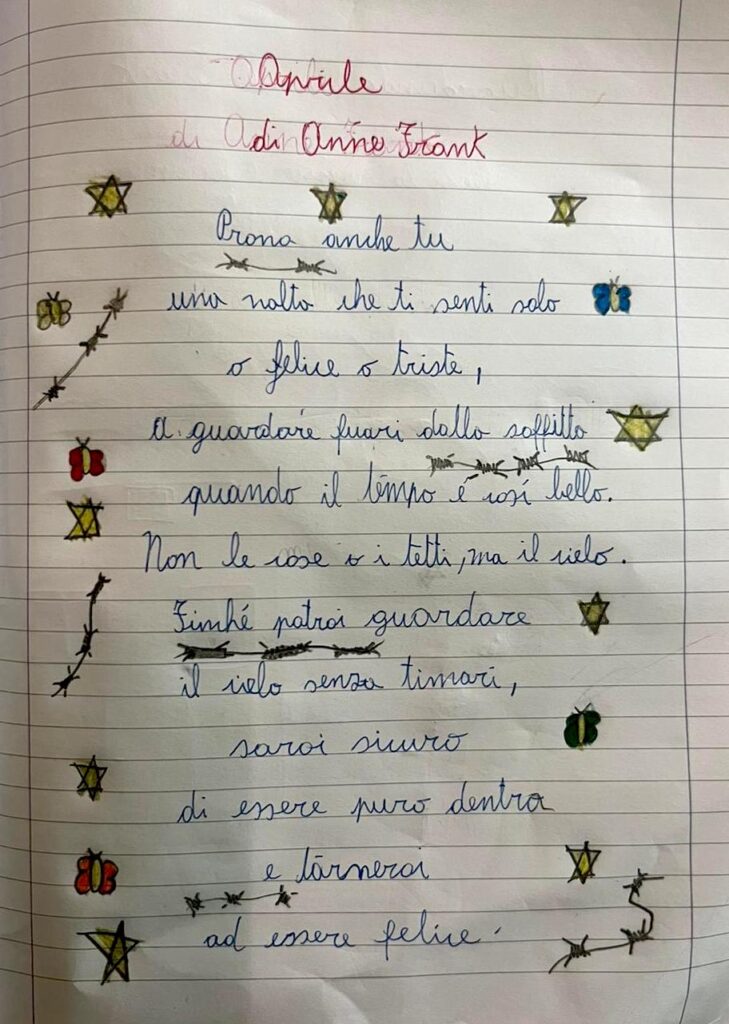 Aprile
di Anne Frank
Prova anche tu
una volta che ti senti solo
o felice o triste,
a guardare fuori dalla soffitta
quando il tempo é cosí bello.
Non le case o i tetti, ma il cielo.
Finché potrai guardare
il cielo senza timori,
sarai sicuro
di essere puro dentro
e tornerai
ad essere felice.